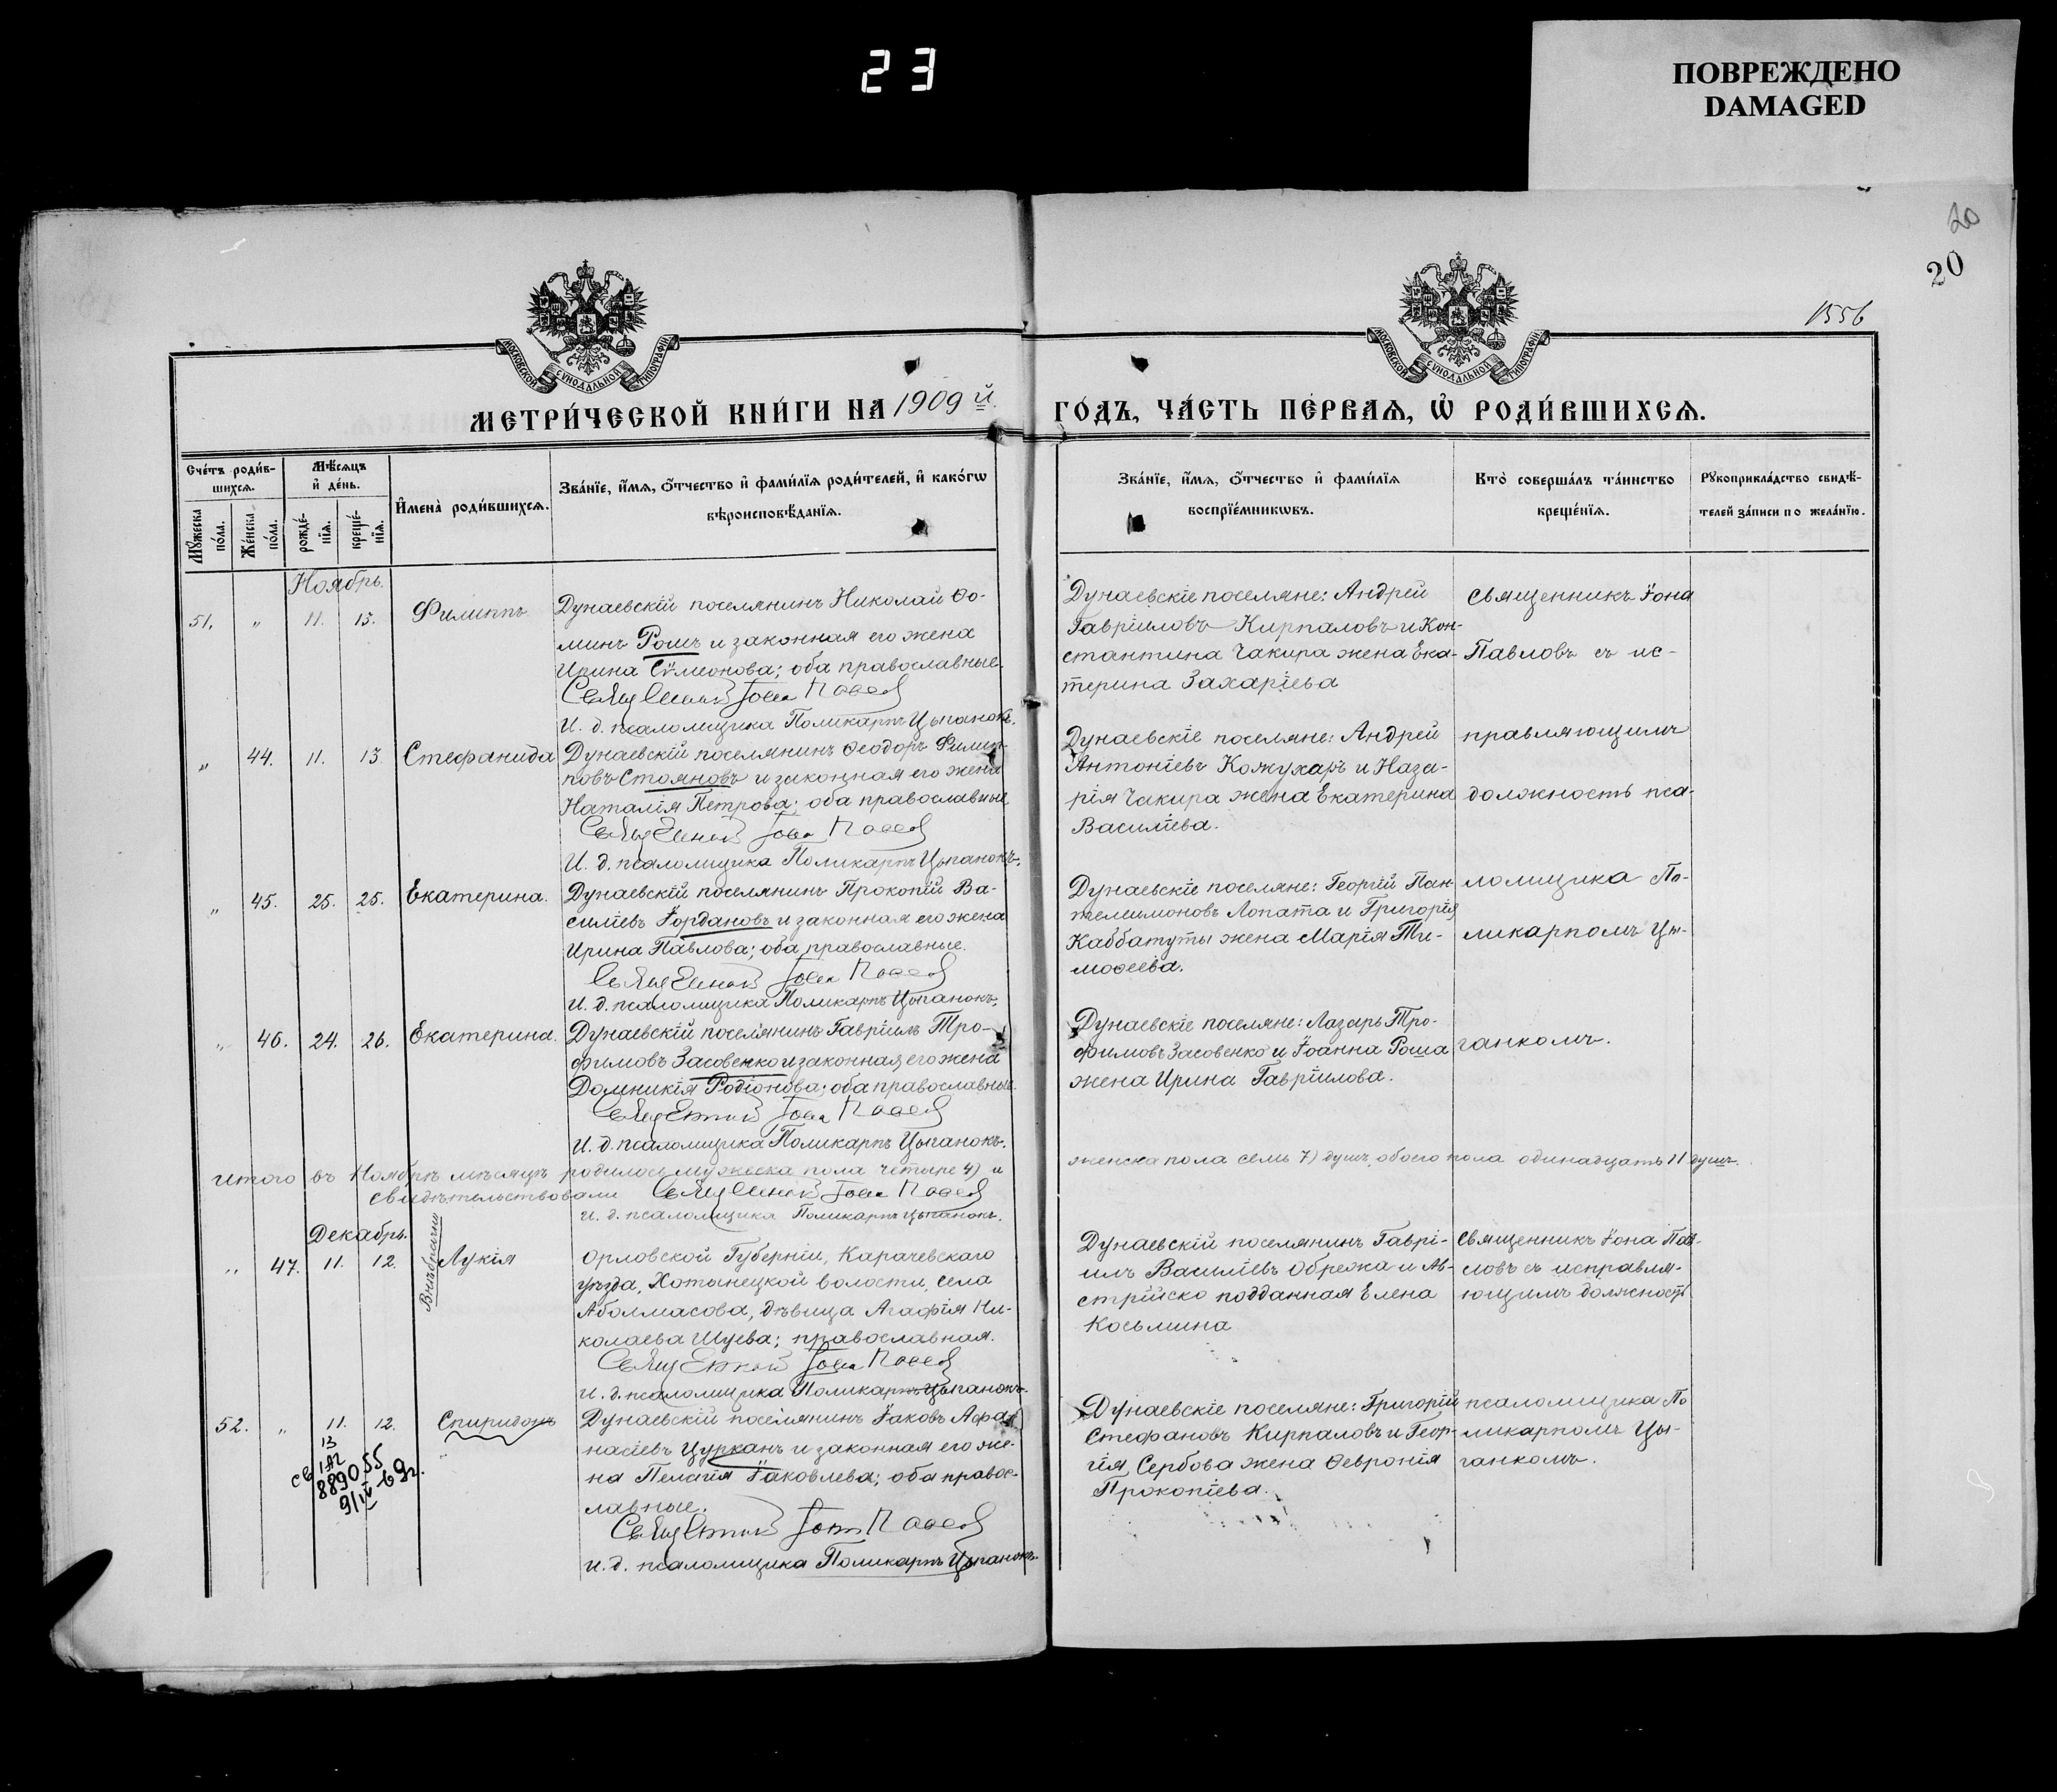 23
ПОВРЕЖДЕНО
DAMAGED
20
20
1556
МОСКОВСКОЙ СѴНОДАЛЬНОЙ ТИПОГРАФІИ
МОСКОВСКОЙ СѴНОДАЛЬНОЙ ТИПОГРАФІИ
МЕТРИ́ЧЕСКОЙ КНИ́ГИ НА 1909 й
ГО́ДЪ, ЧА́СТЬ ПЕ́РВАѦ, Ѡ҆ РОДИ́ВШИХСѦ.
Сче́тъ роди́в-
шихсѧ.
Мѣ́сѧцъ
и҆ де́нь.
И҆мена̀ роди́вшихсѧ.
Зва́нїе, и҆́мѧ, ѻ҆́тчество и҆ фами́лїѧ роди́телей, и҆ како́гѡ
вѣроисповѣ́данїѧ.
Мꙋ́жеска
по́ла.
Же́нска
по́ла.
рожде́-
нїѧ.
креще́-
нїѧ.
Зва́нїе, и҆́мѧ, ѻ҆́тчество и҆ фами́лїѧ
воспрїе́мникѡвъ.
Кто̀ соверша́лъ та́инство
креще́нїѧ.
Рꙋкоприкла́дство свидѣ́-
телей за́писи по жела́нїю.
Ноябрь.
51. " 11. 15. Филиппъ
Дунаевскій поселянинъ Николай Ѳо-
минъ Рошъ и законная его жена
Ирина Сѵмеонова; оба православные.
Священникъ Іона Павловъ
И. д. псаломщика Поликарпъ Цыганокъ.
Дунаевскіе поселяне: Андрей
Гавріиловъ Кирпаловъ и Кон-
стантина Чакира жена Ека-
терина Захаріева
Священникъ Іона
Павловъ съ ис-
" 44. 11. 13. Стефанида
Дунаевскій поселянинъ Ѳеодоръ Филип-
повъ Стояновъ и законная его жена
Наталія Петрова; оба православные
Священникъ Іона Павловъ
И. д. псаломщика Поликарпъ Цыганокъ.
Дунаевскіе поселяне: Андрей
Антоніевъ Кожухаръ и Наза-
рія Чакира жена Екатерина
Василіева.
правляющимъ
должность пса-
" 45. 25. 25. Екатерина.
Дунаевскій поселянинъ Прокопій Ва-
силіевъ Іордановъ и законная его жена
Ирина Павлова; оба православные.
Священникъ Іона Павловъ
И. д. псаломщика Поликарпъ Цыганокъ.
Дунаевскіе поселяне: Георгій Пан-
телеимоновъ Лопата и Григорія
Каббатуты жена Марія Ти-
моѳеева.
ломщика По-
ликарпомъ Цы-
" 46. 24. 26. Екатерина.
Дунаевскій поселянинъ Гавріилъ Тро-
фимовъ Засовенко и законная его жена
Домникія Родіонова; оба православные
Священникъ Іона Павловъ
И. д. псаломщика Поликарпъ Цыганокъ.
Дунаевскіе поселяне: Лазарь Тро-
фимовъ Засовенко и Іоанна Роша
жена Ирина Гавріилова.
ганкомъ.
Итого въ Ноябрѣ мѣсяцѣ родилось мужеска пола четыре 4) и
женска пола семь 7) душъ, обоего пола одинадцать 11 душъ.
свидѣтельствовали Священникъ Іона Павловъ
и. д. псаломщика Поликарпъ Цыганокъ.
Декабрь.
Внѣбрачн
" 47. 11. 12. Лукія
Орловской Губерніи, Карачевскаго
уѣзда, Хотынецкой волости, села
Аболмасова, дѣвица Агафія Ни-
колаева Шуева; православная.
Священникъ Іона Павловъ
и. д. псаломщика Поликарпъ Цыганокъ.
Дунаевскій поселянинъ Гаврі-
илъ Василіевъ Обрежа и Ав-
стрійско подданная Елена
Косьмина
Священникъ Іона Пав-
ловъ съ исправля-
ющимъ должность
52. " 11. 12. Спиридонъ
13
889055
9/IV 69г.
Дунаевскій поселянинъ Іаковъ Афа-
насіевъ Цурканъ и законная его же-
на Пелагія Іаковлева; оба правос-
лавные.
Священникъ Іона Павловъ
и. д. псаломщика Поликарпъ Цыганокъ.
Дунаевскіе поселяне: Григорій
Стефановъ Кирпаловъ и Геор-
гія Сербова жена Ѳевронія
Прокопіева.
псаломщика По
ликарпомъ Цы-
ганкомъ.